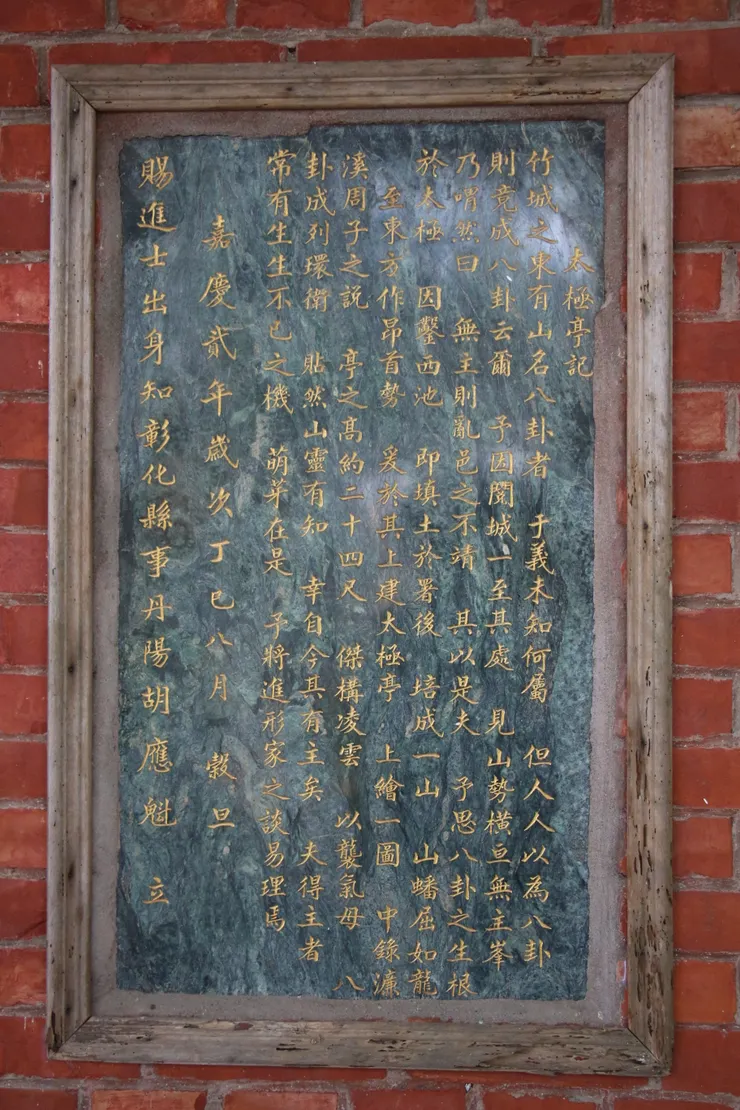 太極亭記
竹城之東有山名八卦者 于義未知何屬 但人人以為八卦
則竟成八卦云爾 予因閱城一至其處 見山勢橫亘無主峯
乃喟然曰 無主則亂邑之不靖 其以是夫 予思八卦之生根
於太極 因鑿西池 即填土於署後 培成一山 山蟠屈如龍
至東方作昂首勢 爰於其上建太極亭 上繪一圖 中錄濂
溪周子之說 亭之高約二十四尺 傑構凌雲 以襲氣母 八
卦成列環衛 貼然山靈有知 幸自今其有主矣 夫得主者
常有生生不已之機 萌芽在是 予將進形家之談易理焉
嘉慶貳年歲次丁巳八月 穀旦
賜進士出身知彰化縣事丹陽胡應魁 立